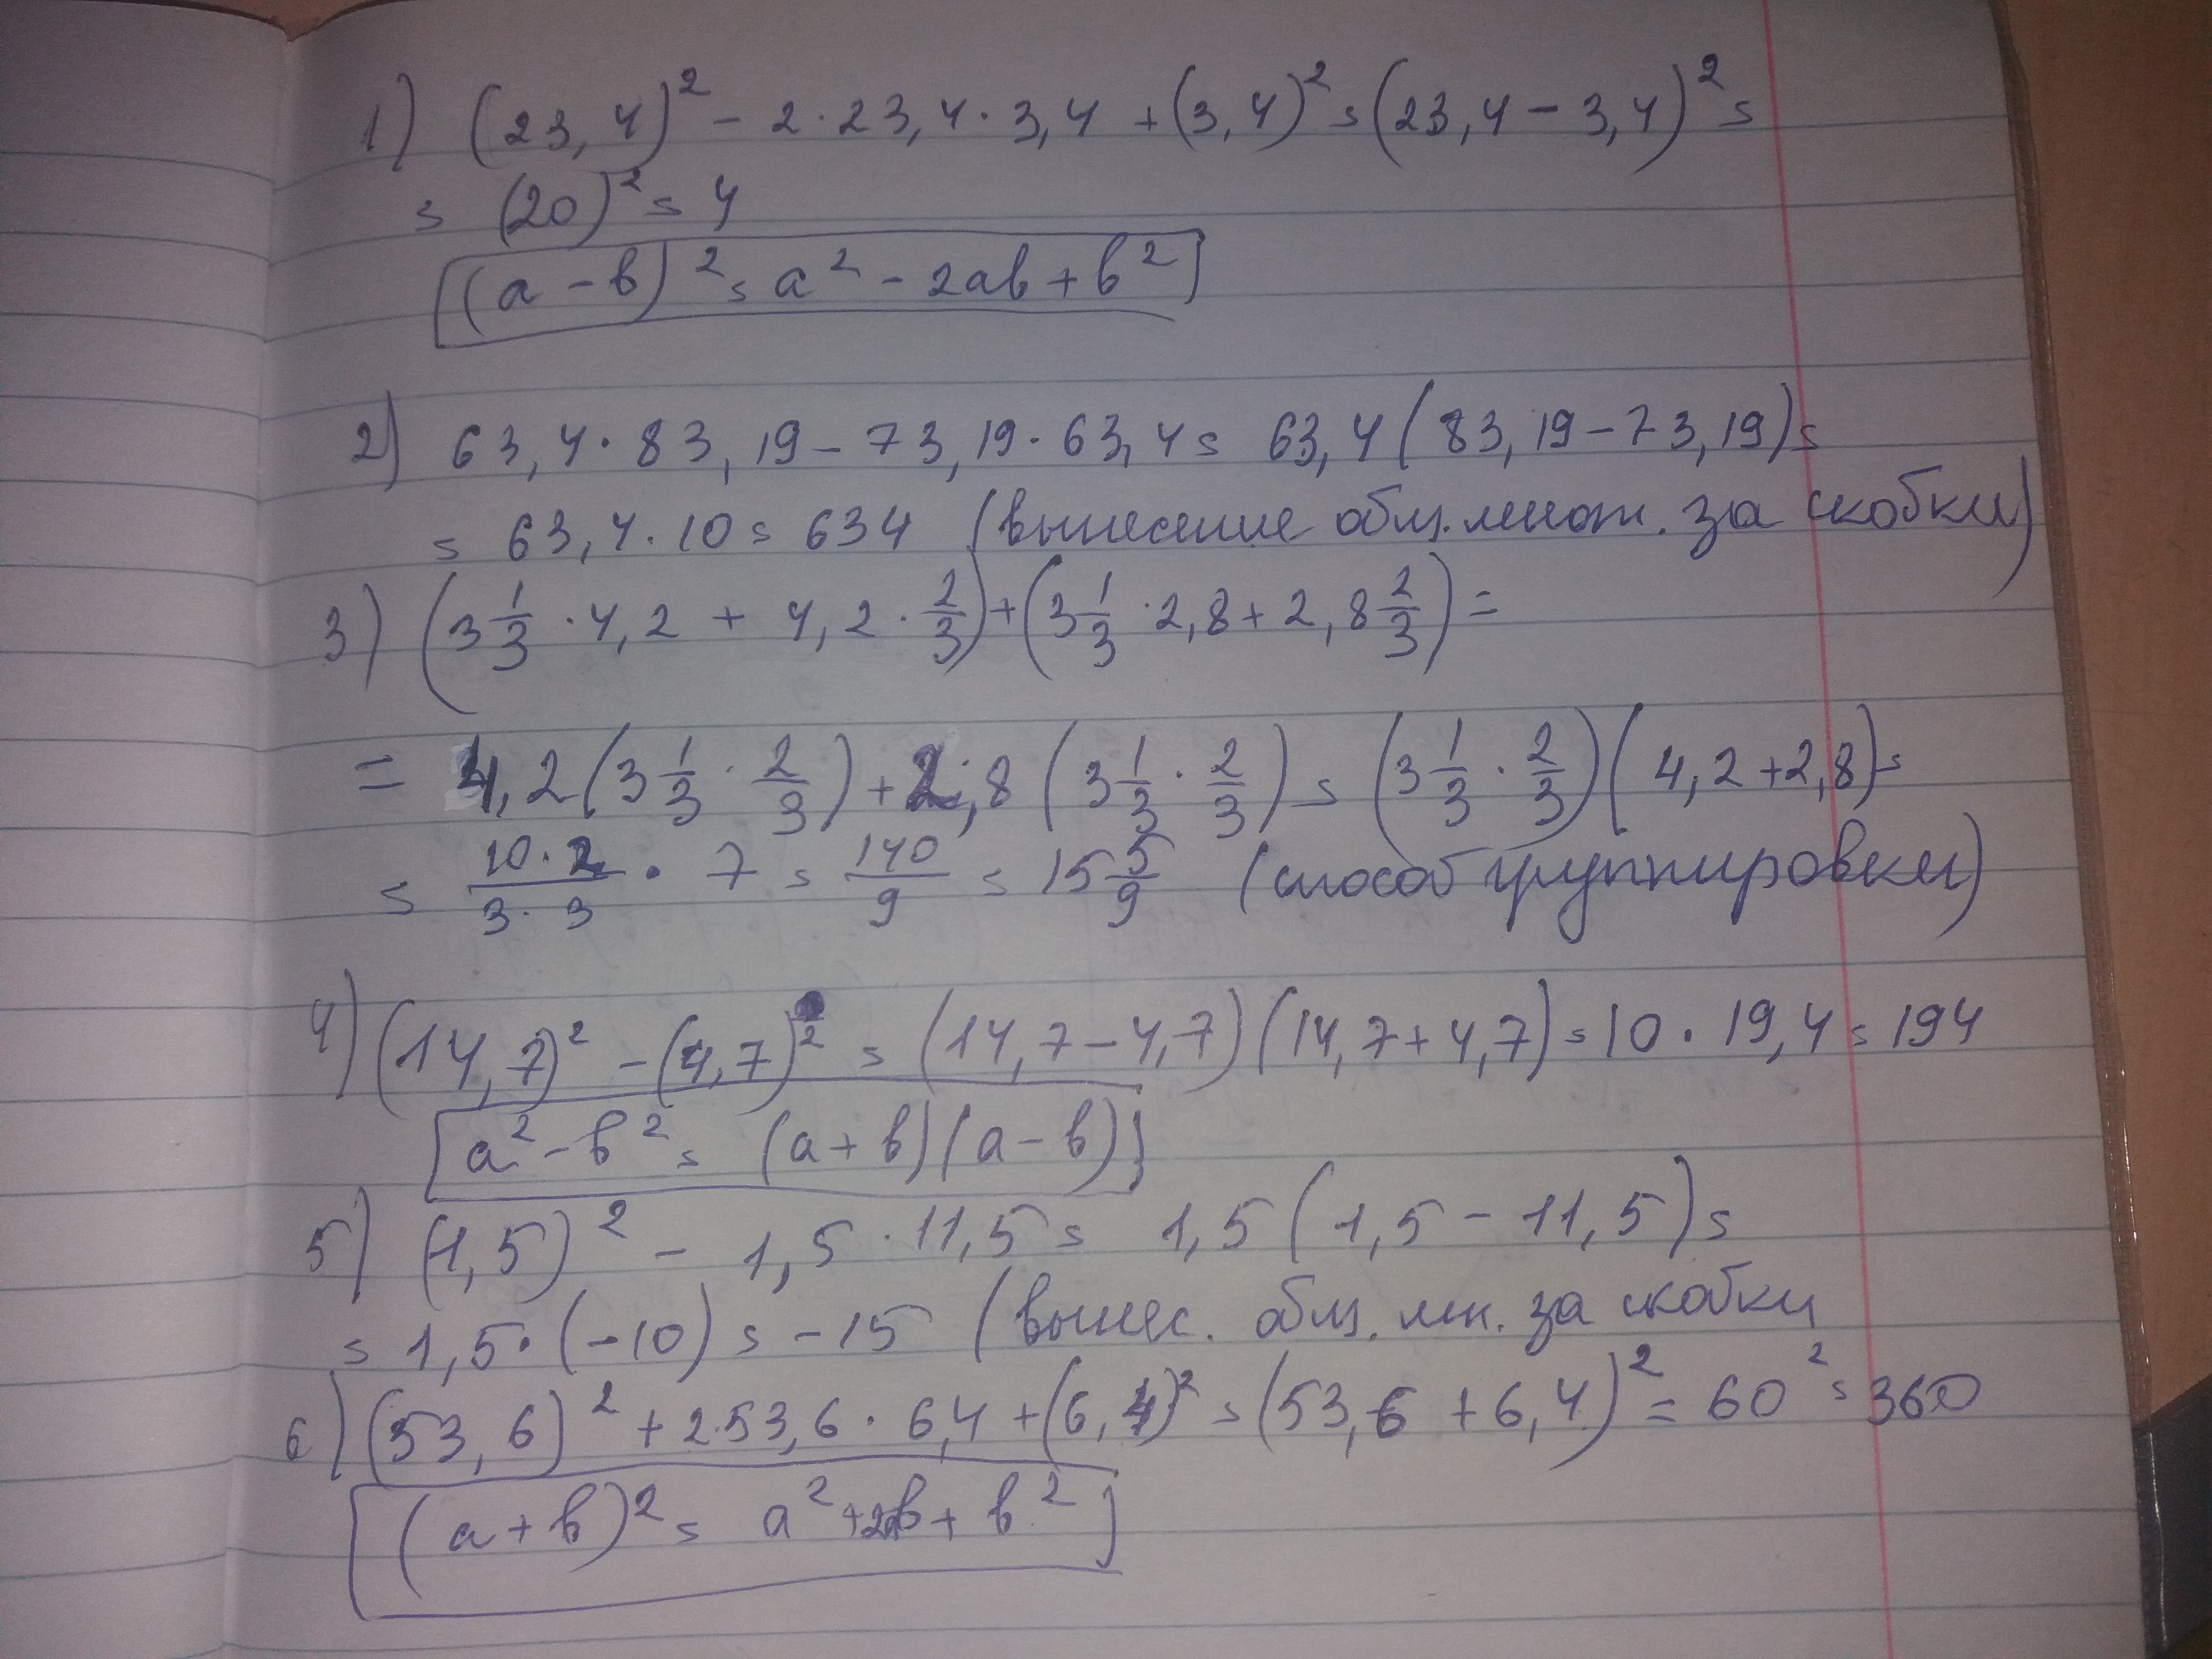 1) (23,4)² - 2·23,4·3,4 + (3,4)² = (23,4 - 3,4)² =
= (20)² = 4
(a - b)² = a² - 2ab + b²
2) 63,4·83,19 - 73,19·63,4 = 63,4(83,19 - 73,19) =
= 63,4·10 = 634 (вынесение общ. множ. за скобки)
3) (3 1/3 · 4,2 + 4,2 · 2/3) + (3 1/3 · 2,8 + 2,8 2/3) =
= 4,2(3 1/3 · 2/3) + 2,8(3 1/3 · 2/3) = (3 1/3 · 2/3)(4,2 + 2,8) =
= 10·2/3·3 · 7 = 140/9 = 15 5/9 (способ группировки)
4) (14,7)² - (4,7)² = (14,7 - 4,7)(14,7 + 4,7) = 10·19,4 = 194
a² - b² = (a + b)(a - b)
5) (1,5)² - 1,5·11,5 = 1,5(1,5 - 11,5) =
= 1,5·(-10) = -15 (вынес. общ. мн. за скобки
6) (53,6)² + 2·53,6·6,4 + (6,4)² = (53,6 + 6,4)² = 60² = 360
(a + b)² = a² + 2ab + b²